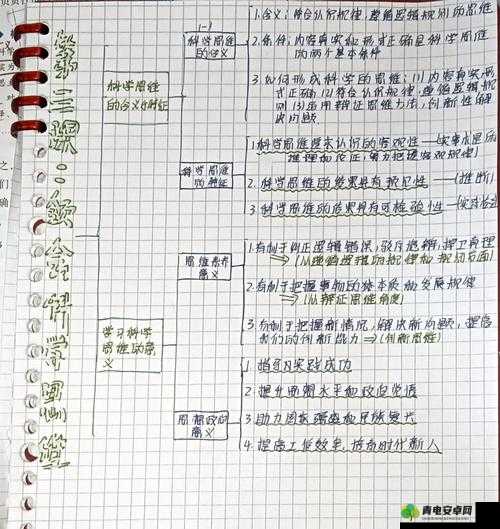 第二课：领会科学思维
科学思维的含义与特征
1-1
科学思维的含义
1.含义：符合认识规律、遵循逻辑规则的思维
2.条件：内容真实和形式正确是科学思维
的两个基本条件
3.如何形成科学的思维：(1)内容真实形
式正确(2)符合认识规律，遵循逻辑规
则(3)运用辩证思维方法，创新性解
决问题
科学思维的特征
1.科学思维追求认识的客观性
2.科学思维的结果具有预见性
3.科学思维的结果具有可检验性
学习科学思维的意义
思维素养意义
1.有利于纠正逻辑错误，驳斥诡辩，捍卫真理
2.有利于把握事物的本质和发展规律
(从辩证思维角度)
3.有利于把握新情况，解决新问题，提高
我们的创新能力(创新思维)
思想政治意义
1.指导实践成功
2.提升
3.助力国家强盛和民族复兴
4.提高工作效率，培育时代新人
青电安卓网